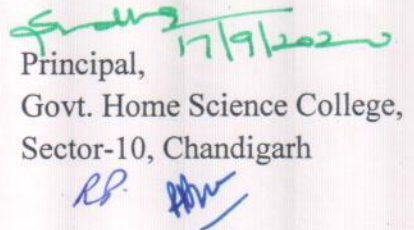 17/9/2020
Principal,
Govt. Home Science College,
Sector-10, Chandigarh
RP.